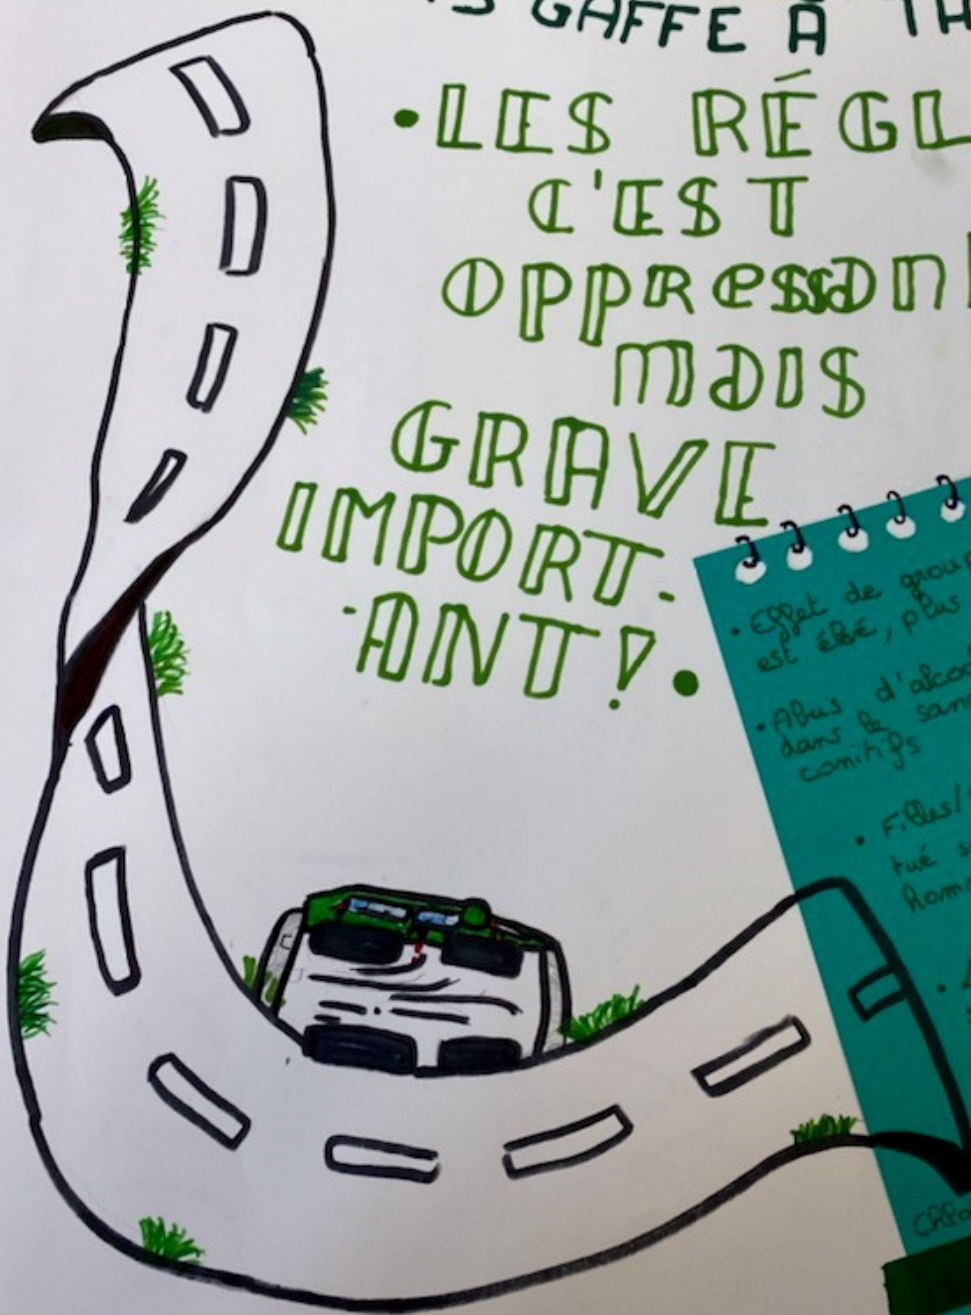 GAFFE À
• LES RÉGL
C'EST
OPPRessan
maIS
GRAVE
IMPORT-
-ANT ! •
• Effet de group
est élévé, plus
• Abus d'alcoo
dans le san
conitifs
• Filles/
tué s
hom